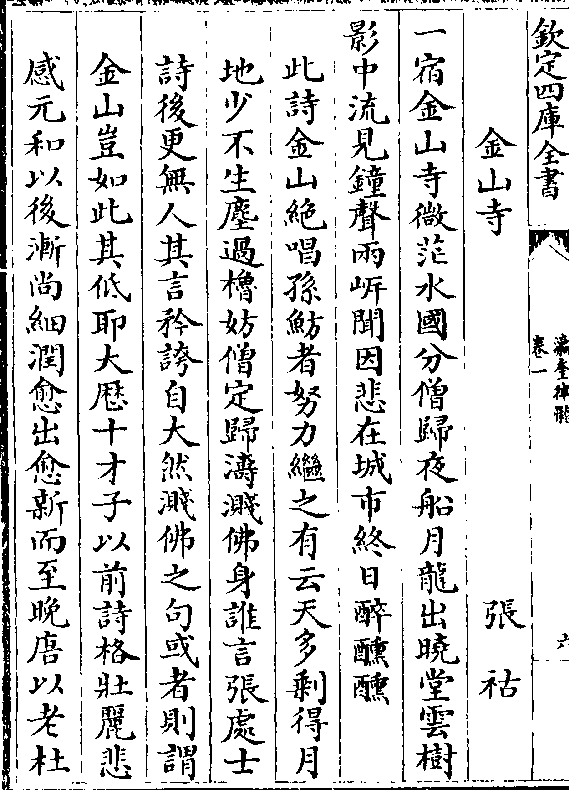 欽定四庫全書
瀛奎律髓
卷一
六
金山寺
張祜
一宿金山寺微茫水國分僧歸夜船月龍出曉堂雲樹
影中流見鐘聲兩岍聞因悲在城市終日醉醺醺
此詩金山絶唱孫魴者努力繼之有云天多剰得月
地少不生塵過櫓妨僧定歸濤濺佛身誰言張處士
詩後更無人其言矜誇自大然濺佛之句或者則謂
金山豈如此其低耶大厯十才子以前詩格壯麗悲
感元和以後漸尚細潤愈出愈新而至晚唐以老杜